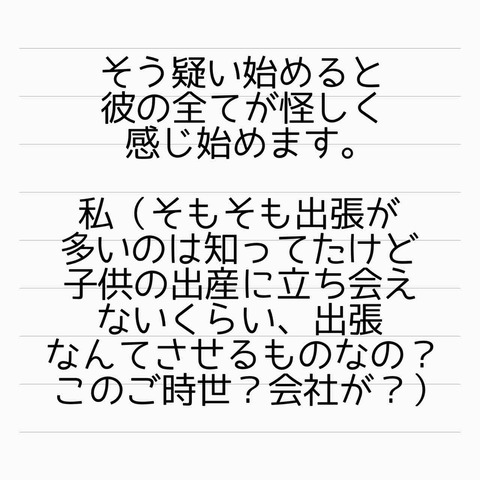 そう疑い始めると
彼の全てが怪しく
感じ始めます。
私（そもそも出張が
多いのは知ってたけど
子供の出産に立ち会え
ないくらい、出張
なんてさせるものなの？
このご時世？会社が？）